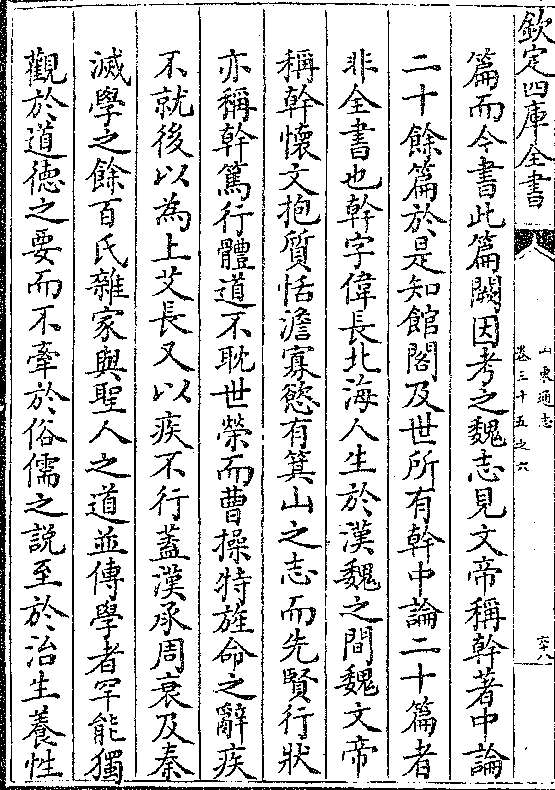 欽定四庫全書
山東通志
卷三十五之六
六十八
篇而今書此篇闕因考之魏志見文帝稱幹著中論
二十餘篇於是知館閣及世所有幹中論二十篇者
非全書也幹字偉長北海人生於漢魏之間魏文帝
稱幹懷文抱質恬澹寡慾有箕山之志而先賢行狀
亦稱幹篤行體道不耽世榮而曹操特旌命之辭疾
不就後以為上艾長又以疾不行蓋漢承周衰及秦
滅學之餘百氏雜家與聖人之道並傳學者罕能獨
觀於道德之要而不牽於俗儒之説至於治生養性